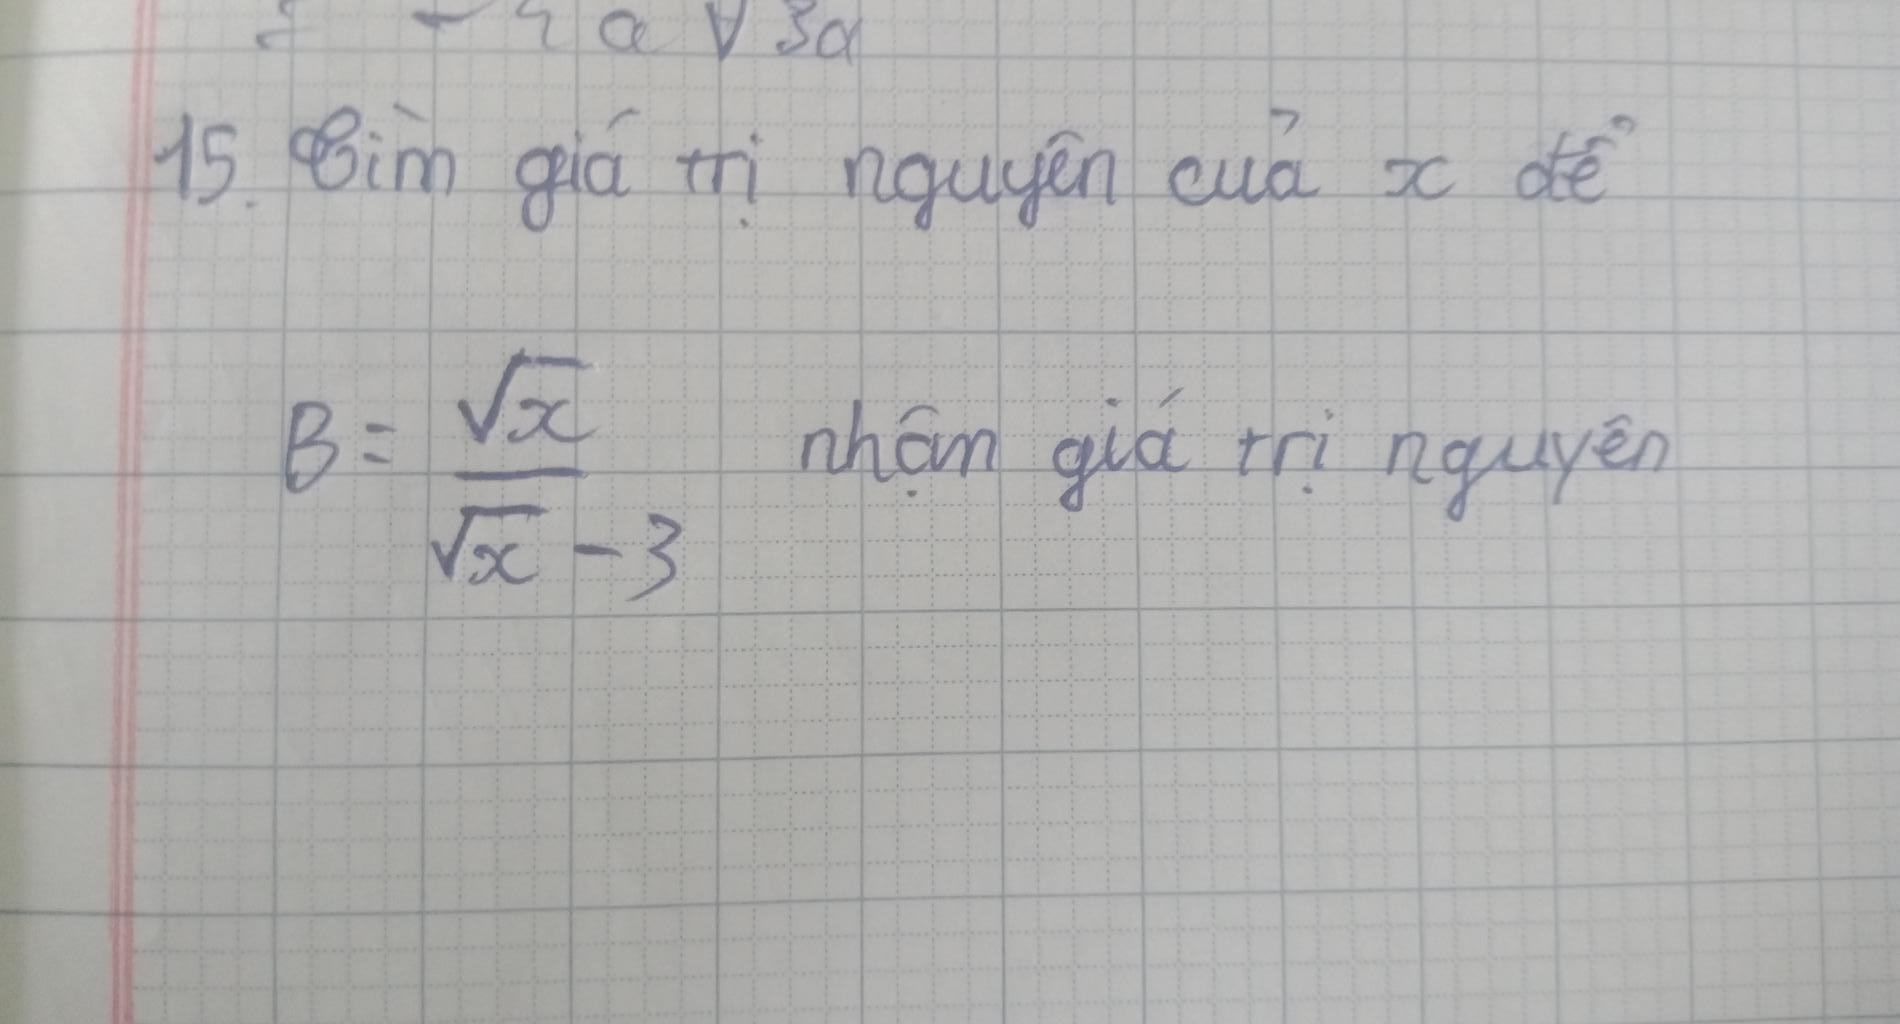 - 4 a √3a
15. Tìm giá trị nguyên của x để
B = √x / (√x - 3) nhận giá trị nguyên